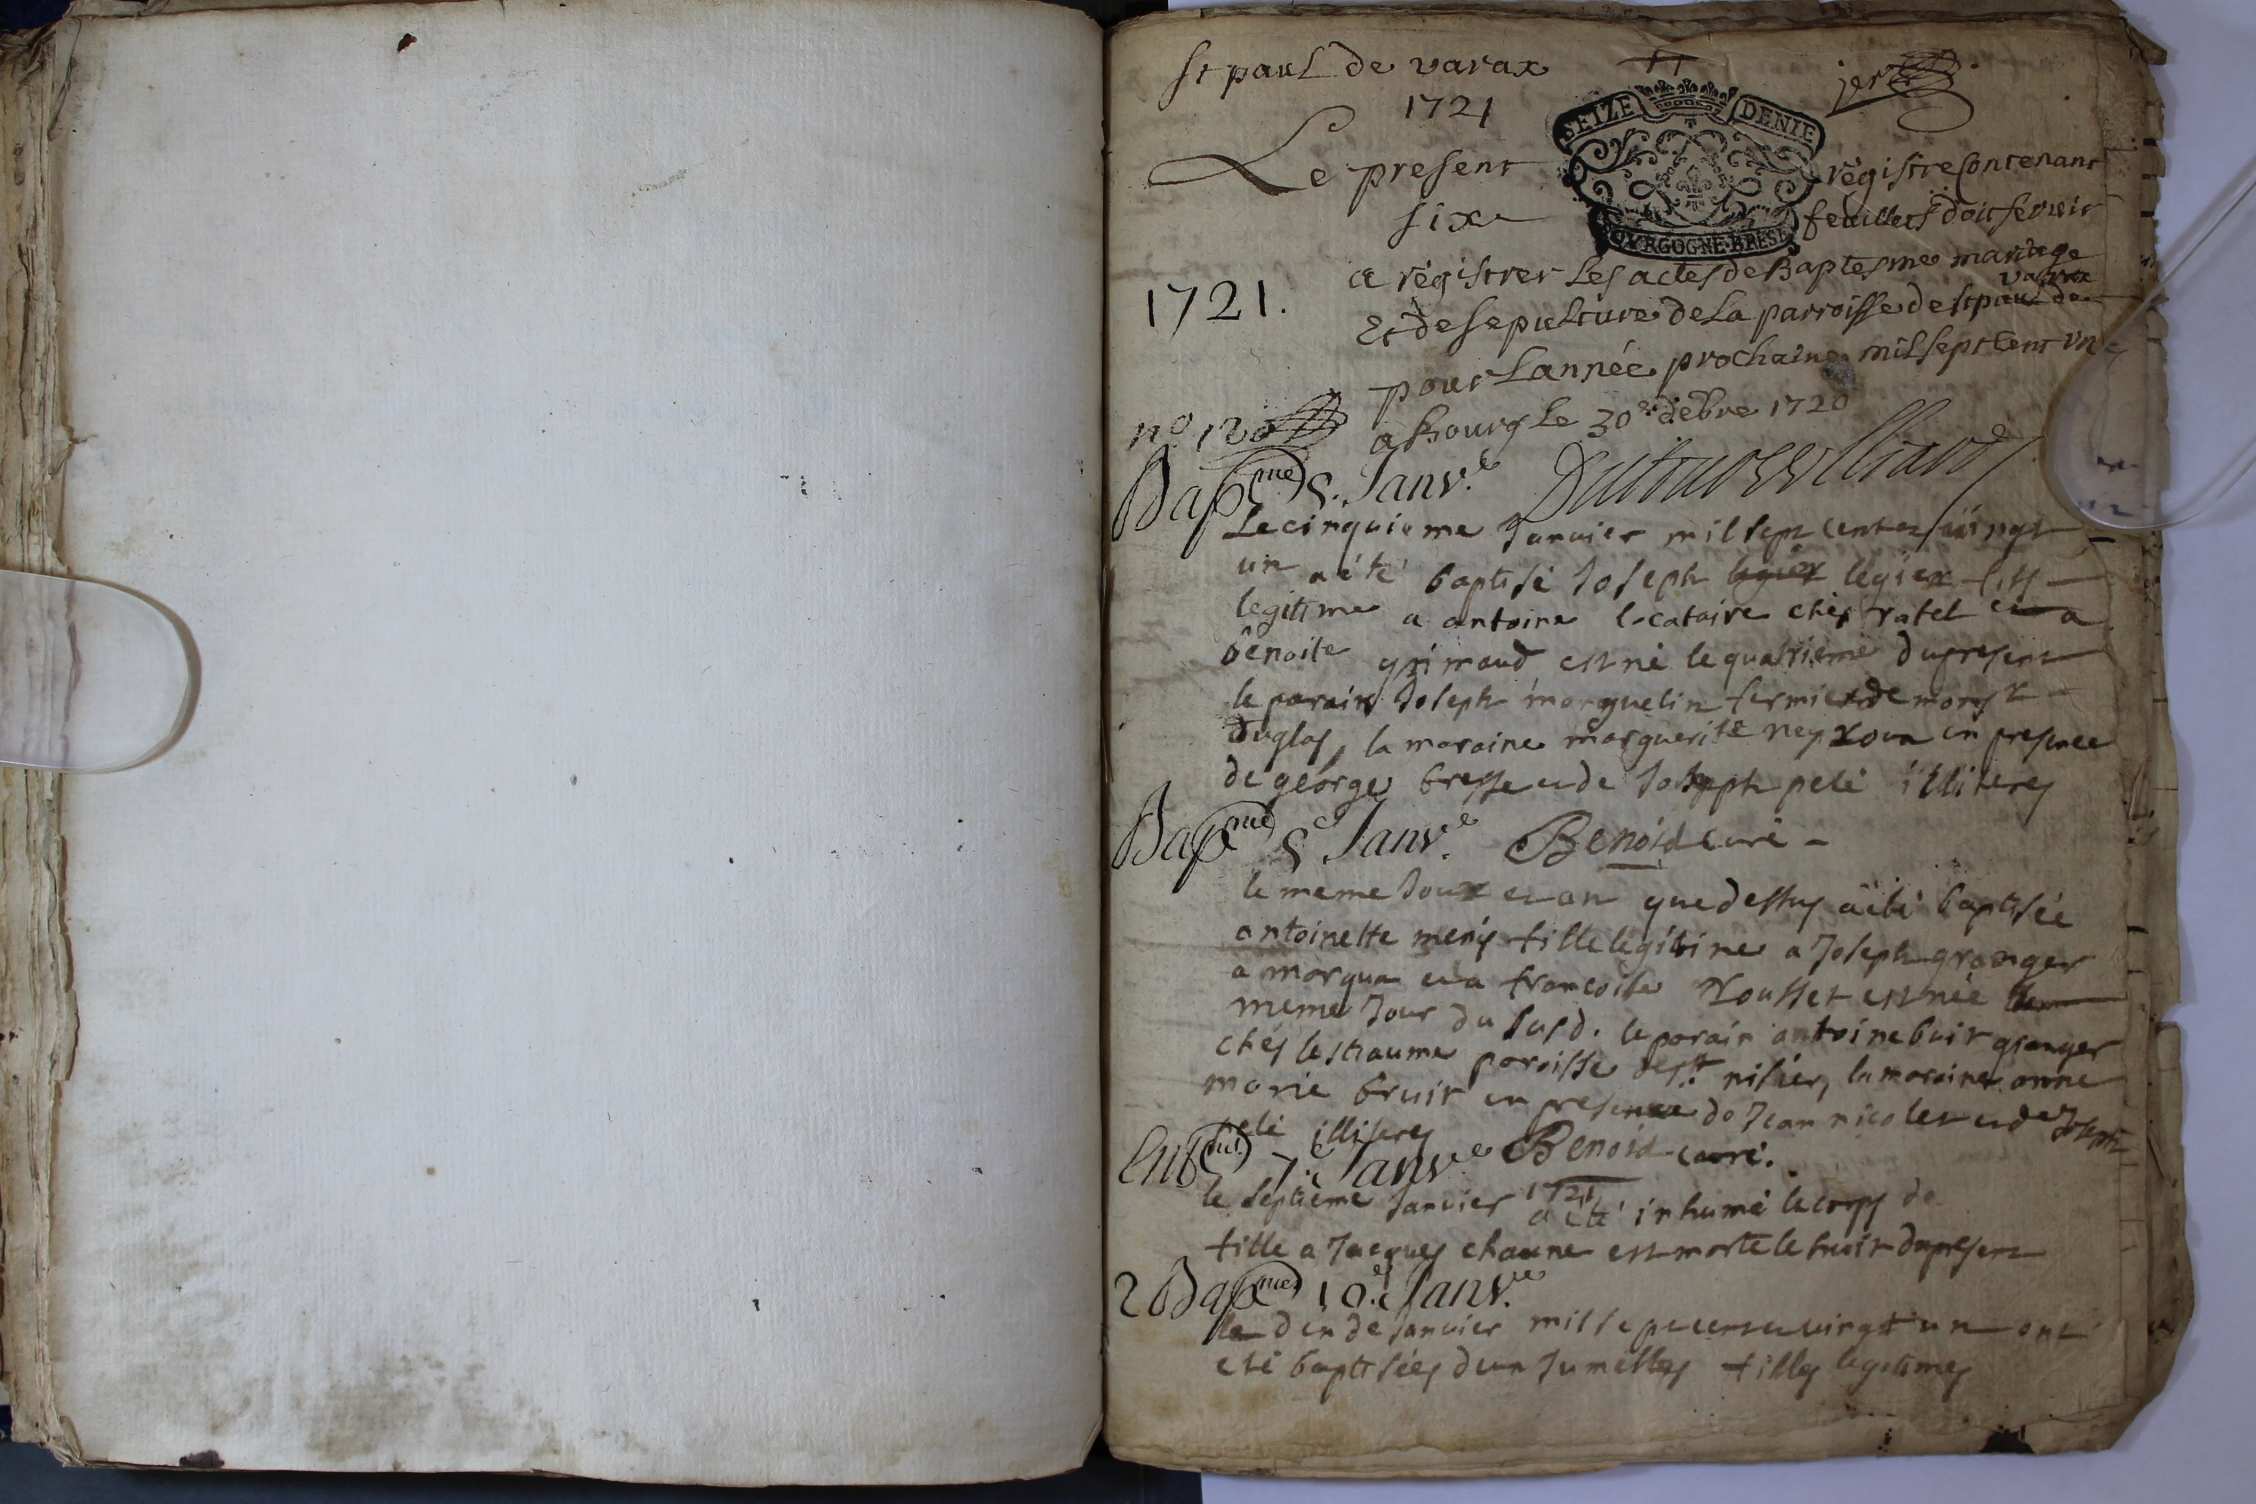 St paul de varax
1721
SEIZE DENIE
Le present registre Contenant
six feuillets doit servir
BOVRGOGNE BRESE
a régistrer Les actes de Baptesme mariage
varax
Et de sepulture de La parroisse de st paul de
1721.
pour Lannée prochaine mil sept Cent vn
n.o 120
a Bourg Le 30e debre 1720
Bap.me 5. Janv.e
Le cinquieme Janvier mil sept cent et vingt
un a été baptisé Joseph legier legier fils
legitime a antoine locataire chés ratel et a
benoite grimaud est né le quatrieme du present
le parain Joseph morguelin fermier de monsr
duglas, la maraine marguerite neyroux en presence
de george bresse et de Joseph pelé illiteres
Bap.me 5e Janv.e Benoid curé
le meme Jour et an que dessus a été baptisée
antoinette fille legitime a Joseph granger
a morgua et a francoise Rousset est née le
meme Jour du susd. le parain antoine buit granger
chés lestraume paroisse de st nisier, la maraine anne
marie bruit en presence de Jean nicolet et de Joseph
pelé illiteres
7e Janv.e Benoid curé.
le septieme Janvier 1721 a été inhumé le corps de
fille a Jacques chaune est morte le huit du present
2 Bap.mes 10e Janv.e
le dix de Janvier mil sept cent et vingt un ont
eté baptisées deux Jumelles filles legitimes